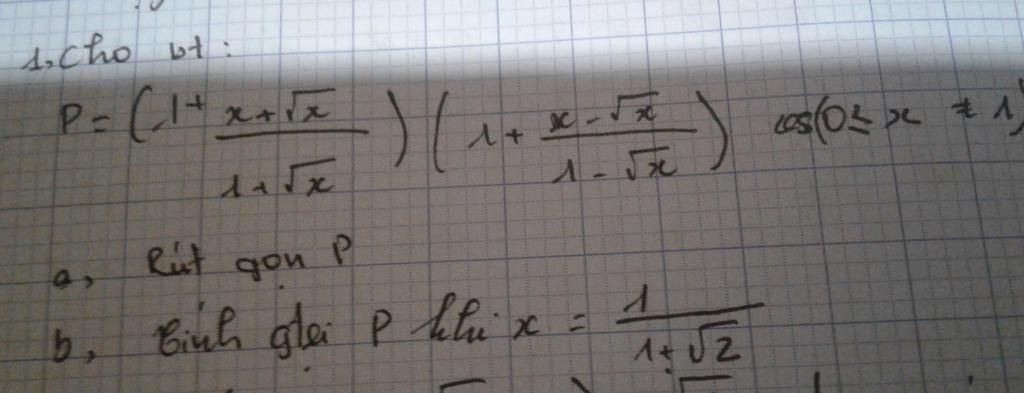 1, Cho bt:
P = (1 + \frac{x + \sqrt{x}}{1 + \sqrt{x}}) (1 + \frac{x - \sqrt{x}}{1 - \sqrt{x}}) (0 ≤ x ≠ 1)
a, Rút gọn P
b, Tính gtrị P khi x = \frac{1}{1 + \sqrt{2}}